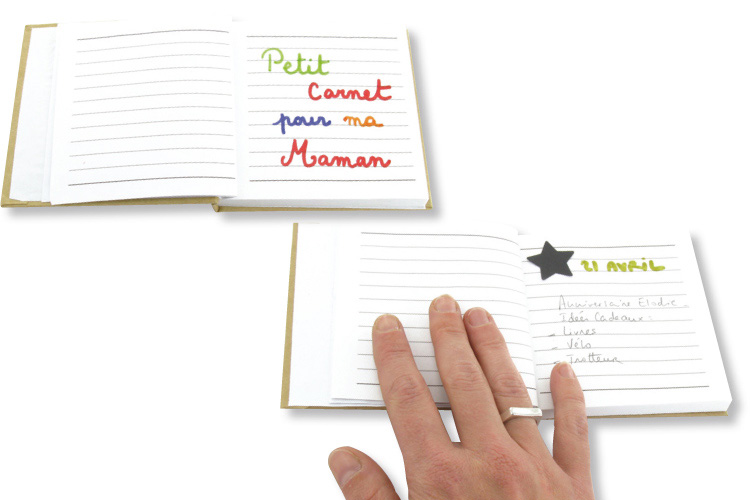 Petit
Carnet
pour ma
Maman
21 AVRIL
Anniversaire Elodie
Idées Cadeaux :
- Livres
- Vélo
- Trotteur